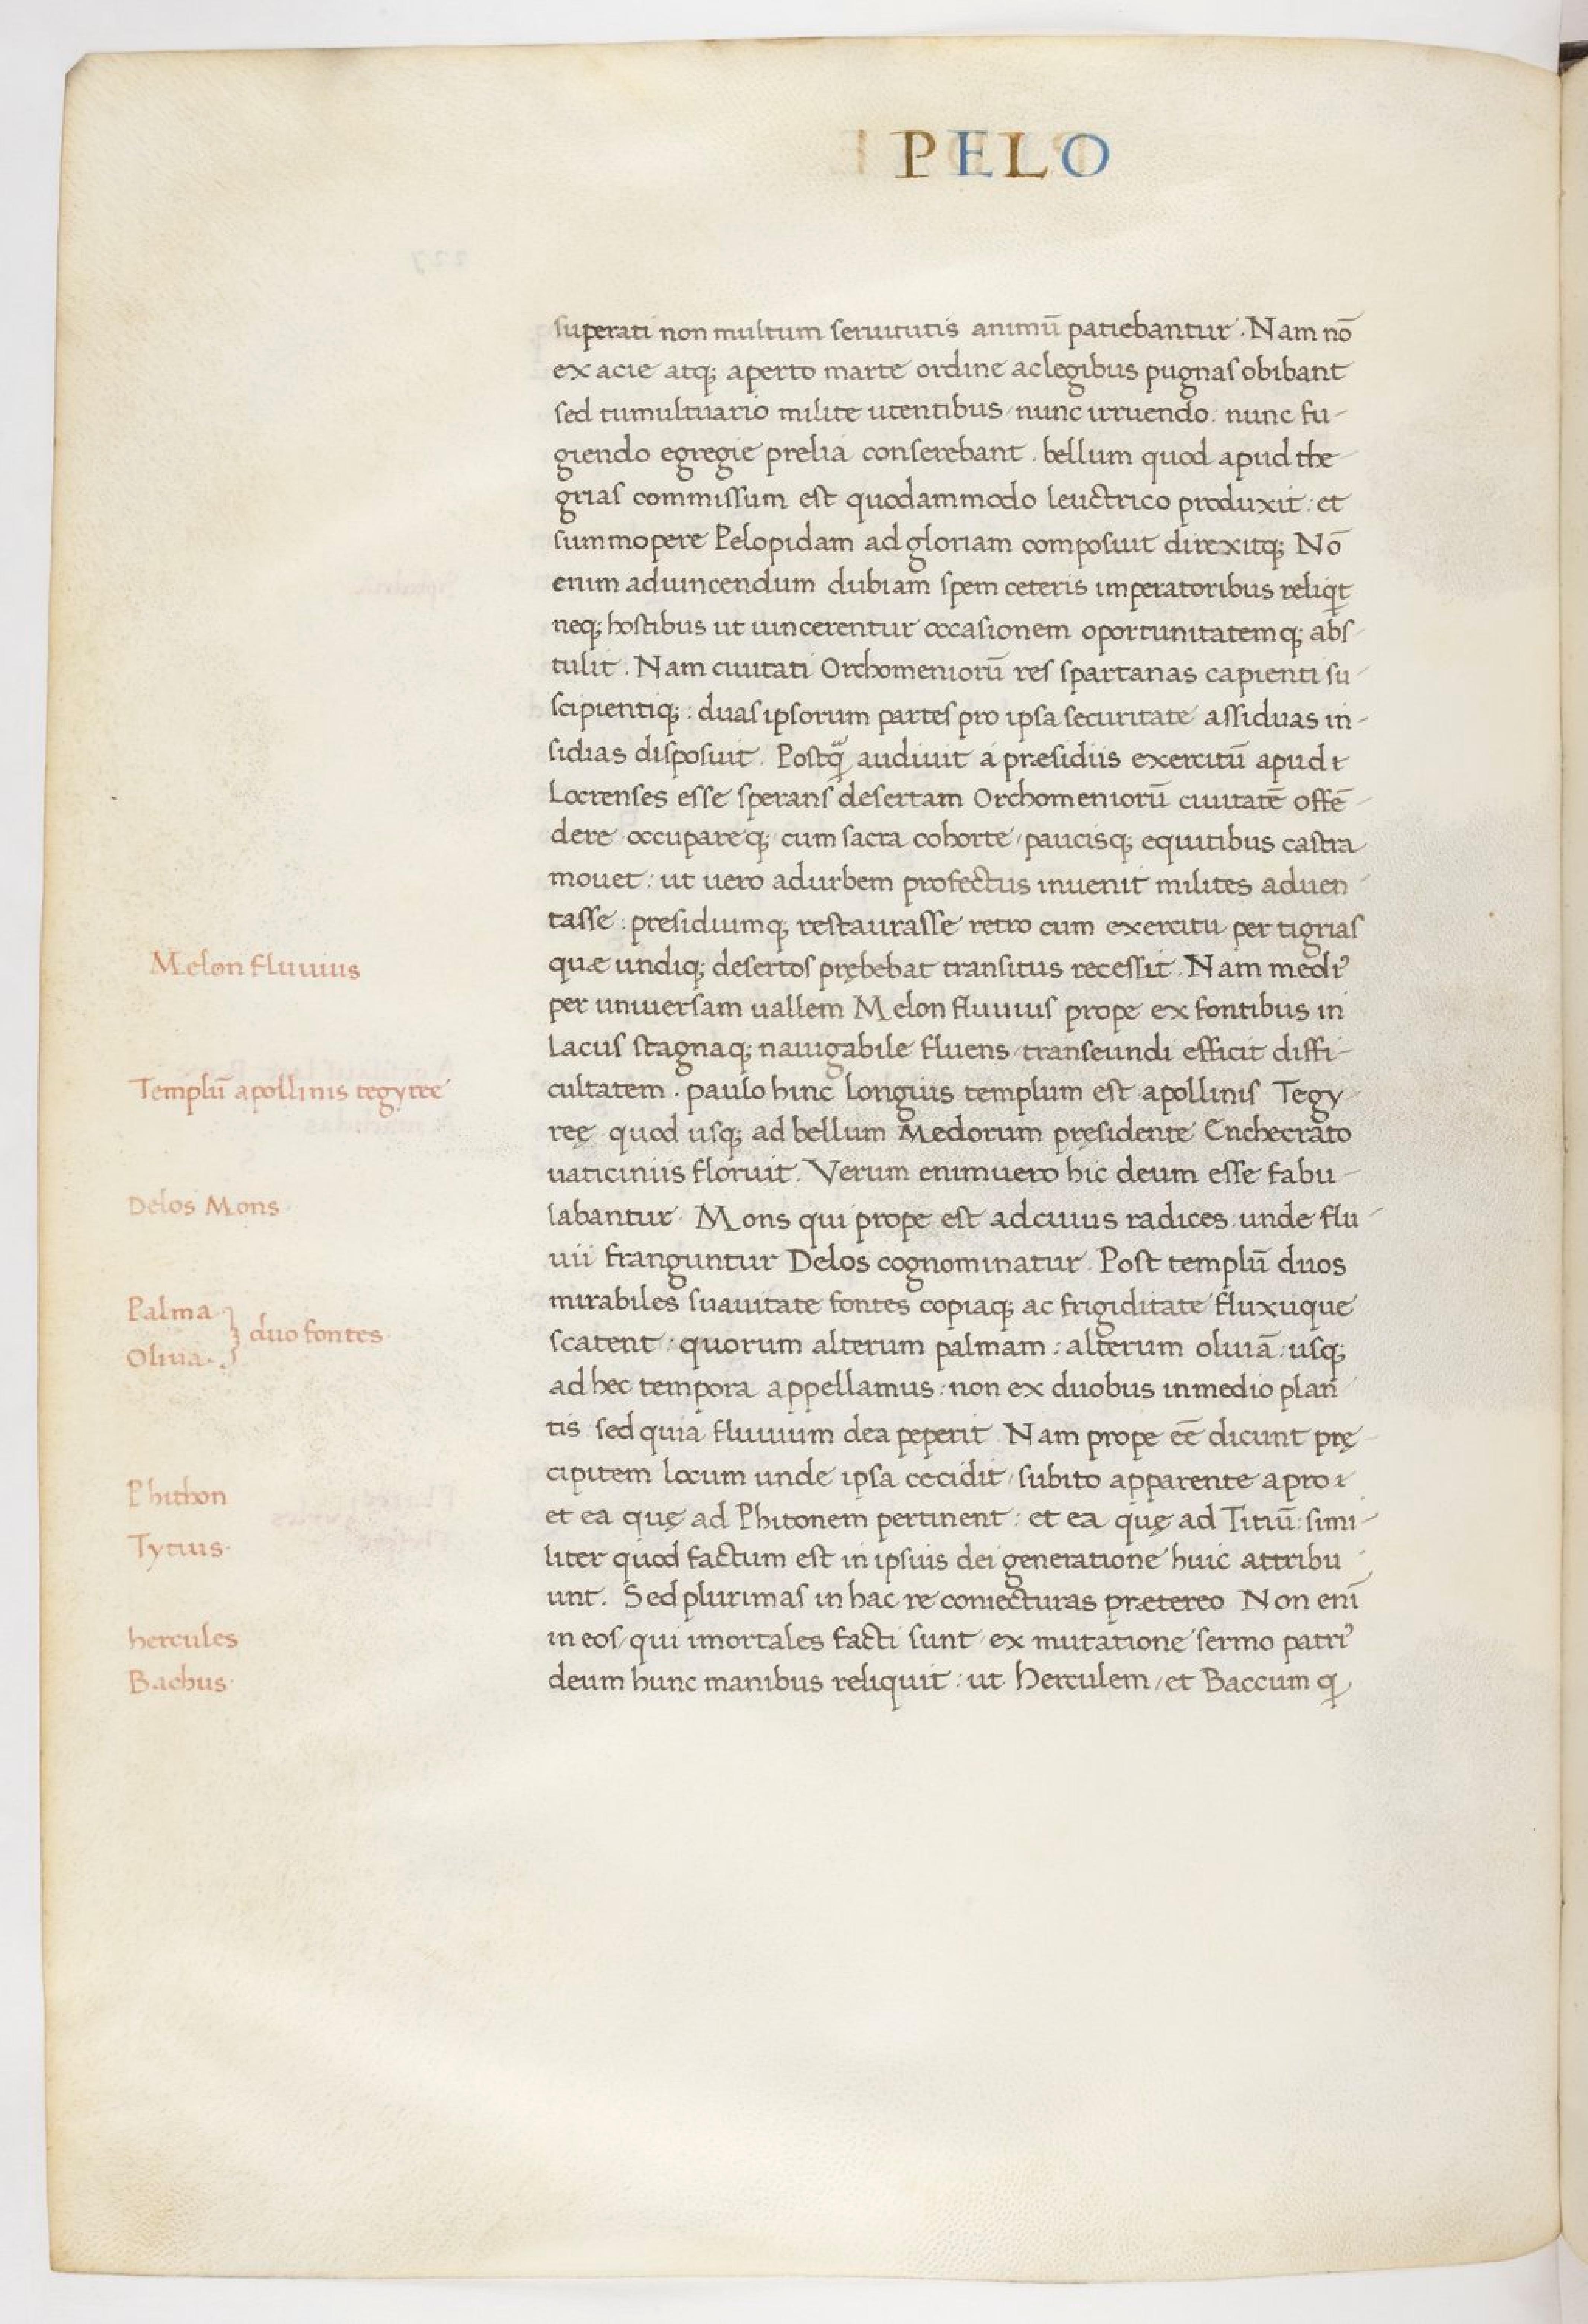 PELO
superati non multum seruitutis animū patiebantur. Nam nō
ex acie atq; aperto marte ordine ac legibus pugnas obibant
sed tumultuario milite utentibus / nunc irruendo: nunc fu-
giendo egregie prelia conserebant. bellum quod apud the-
grias commissum est quodammodo leuctrico produxit: et
summopere Pelopidam ad gloriam composuit direxitq; Nō
enim aduincendum dubiam spem ceteris imperatoribus reliqt
neq; hostibus ut uincerentur occasionem oportunitatemq; abs-
tulit. Nam ciuitati Orchomeniorū res spartanas capienti su-
scipientiq;: duas ipsorum partes pro ipsa securitate assiduas in-
sidias disposuit. Postq̄ audiuit a præsidiis exercitū apud
Locrenses esse sperans desertam Orchomeniorū ciuitatē offē-
dere occupareq; cum sacra cohorte / paucisq; equitibus castra
mouet: ut uero adurbem profectus inuenit milites aduen-
tasse: presidiumq; restaurasse retro cum exercitu per tigrias
quæ undiq; desertos prębebat transitus recessit. Nam medi⁹
per uniuersam uallem Melon fluuius prope ex fontibus in
Lacus stagnaq; nauigabile fluens / transeundi efficit diffi-
cultatem. paulo hinc longius templum est apollinis Tegy-
reę quod usq; ad bellum Medorum pręsidente Enchecrato
uaticiniis floruit. Verum enimuero hic deum esse fabu-
labantur. Mons qui prope est adcuius radices. unde flu-
uii franguntur Delos cognominatur. Post templū duos
mirabiles suauitate fontes copiaq; ac frigiditate fluxuque
scatent: quorum alterum palmam: alterum oliuā: usq;
ad hec tempora appellamus: non ex duobus inmedio plan-
tis sed quia fluuium dea peperit. Nam prope eē dicunt prę-
cipitem locum unde ipsa cecidit / subito apparente apro
et ea quę ad Phitonem pertinent: et ea quę ad Titiū: simi-
liter quod factum est in ipsius dei generatione huic attribu-
unt. Sed plurimas in hac re coniecturas prætereo Non enī
in eos / qui imortales facti sunt ex mutatione sermo patri⁹
deum hunc manibus reliquit: ut Herculem / et Baccum
Melon fluuius
Templū apollinis tegyree
Delos Mons.
Palma
duo fontes.
Oliua.
Phithon
Tytius.
hercules
Bachus.